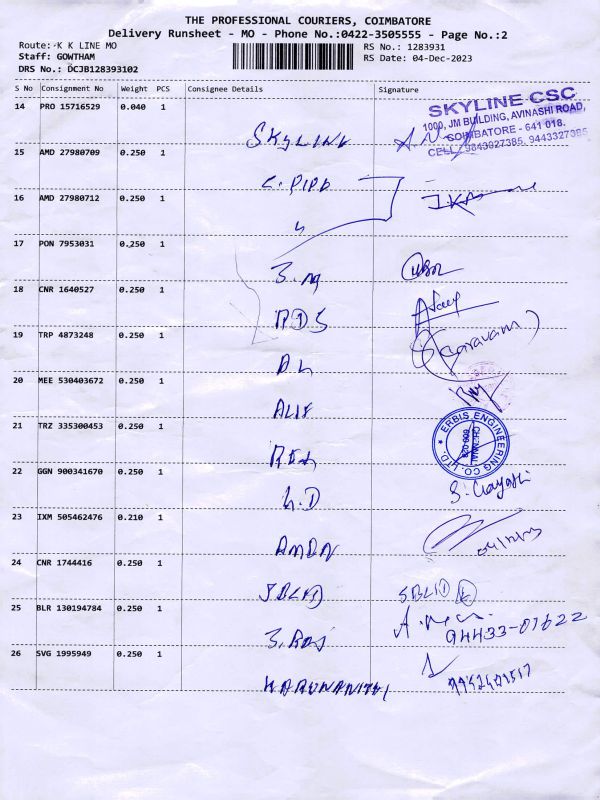 THE PROFESSIONAL COURIERS, COIMBATORE
Delivery Runsheet - MO - Phone No.:0422-3505555 - Page No.:2
Route: K K LINE MO
RS No.: 1283931
Staff: GOWTHAM
RS Date: 04-Dec-2023
DRS No.: DCJB128393102
S No Consignment No Weight PCS Consignee Details Signature
14 PRO 15716529 0.040 1
SKYLINE CSC
1000, JM BUILDING, AVINASHI ROAD,
COIMBATORE - 641 018.
CELL : 9843027385, 9443327385
SKYLINE
15 AMD 27980709 0.250 1
16 AMD 27980712 0.250 1
17 PON 7953031 0.250 1
18 CNR 1640527 0.250 1
RDS
19 TRP 4873248 0.250 1
(Saravanam)
20 MEE 530403672 0.250 1
ALIF
21 TRZ 335300453 0.250 1
ERBIS ENGINEERING CO. LTD.
CHENNAI
22 GGN 900341670 0.250 1
S. Gayathri
23 IXM 505462476 0.210 1
AMDN
24 CNR 1744416 0.250 1
25 BLR 130194784 0.250 1
94433-01622
26 SVG 1995949 0.250 1
KARUNANITHI